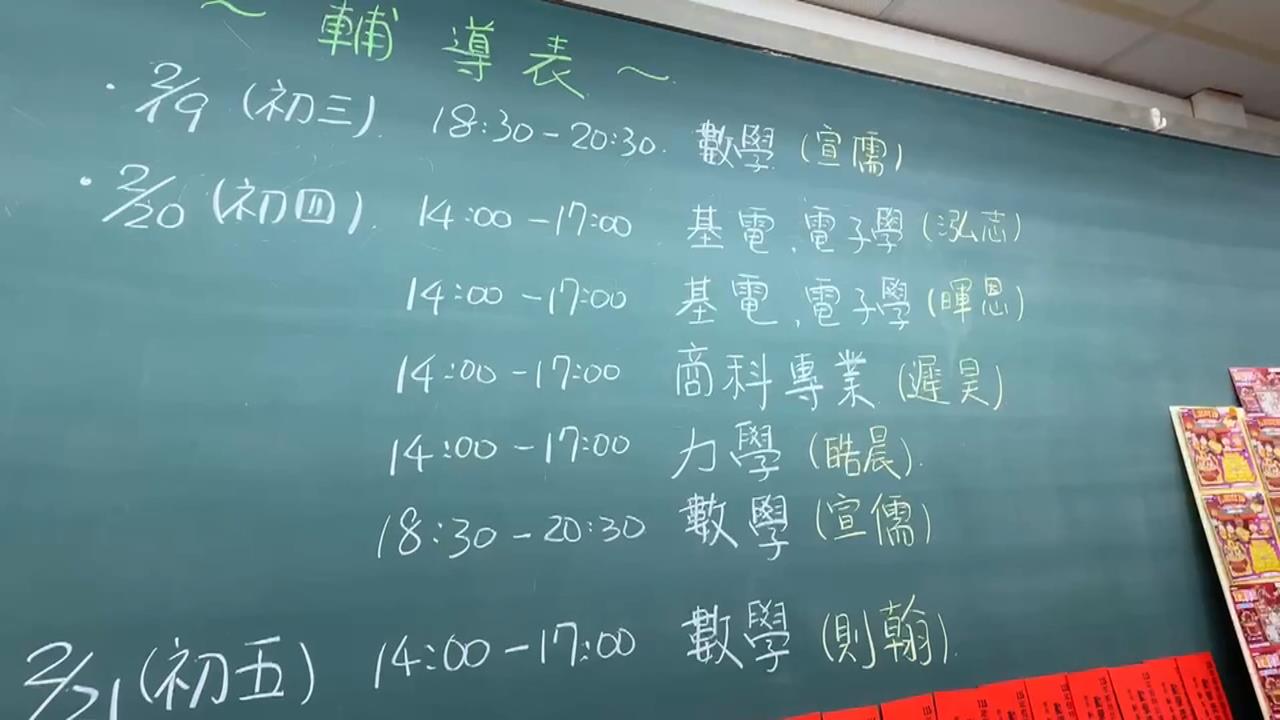 ~ 輔導表 ~
· 2/19 (初三) 18:30-20:30 數學 (宣儒)
· 2/20 (初四) 14:00-17:00 基電、電子學 (泓志)
14:00-17:00 基電、電子學 (暉恩)
14:00-17:00 商科專業 (遲昊)
14:00-17:00 力學 (皓晨)
18:30-20:30 數學 (宣儒)
2/21 (初五) 14:00-17:00 數學 (則翰)